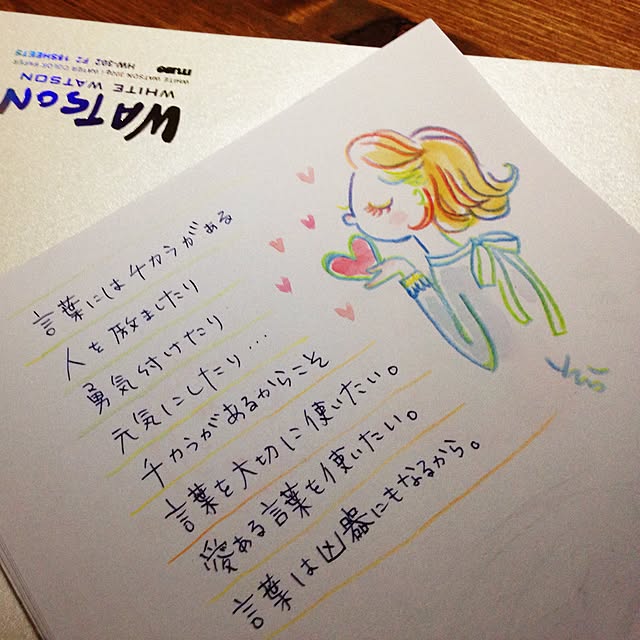 WATSON
WHITE WATSON
WHITE WATSON 300g WATER COLOR PAPER
HW-302 F2 15SHEETS
muse
言葉にはチカラがある
人を励ましたり
勇気付けたり
元気にしたり…
チカラがあるからこそ
言葉を大切に使いたい。
愛ある言葉を使いたい。
言葉は凶器にもなるから。